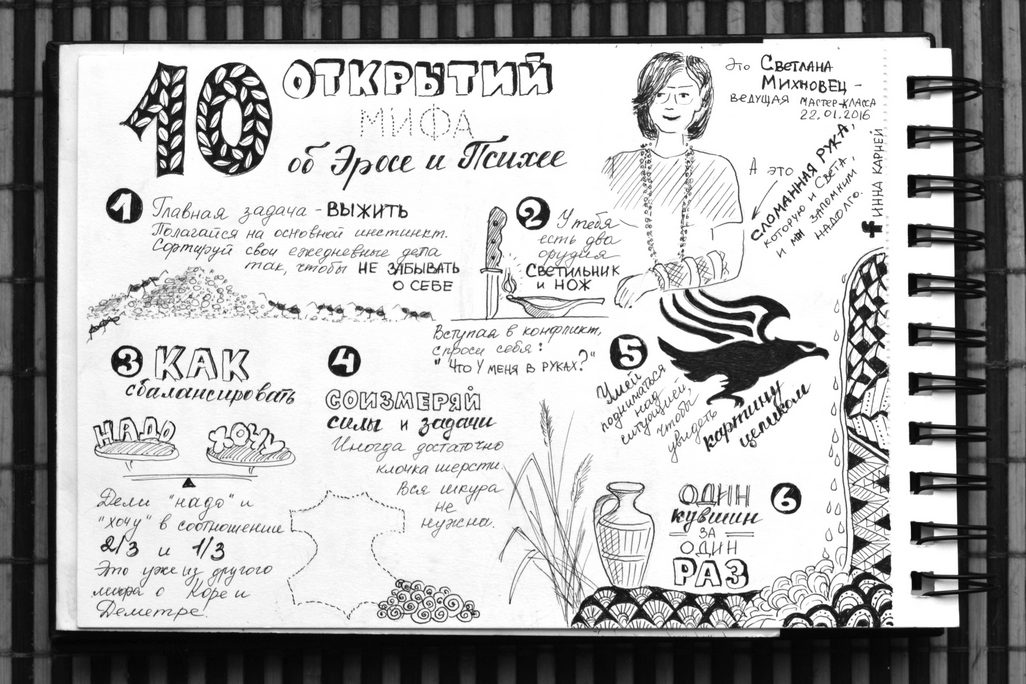 10 ОТКРЫТИЙ
МИФА
об Эросе и Психее
это СВЕТЛАНА
МИХНОВЕЦ -
ВЕДУЩАЯ МАСТЕР-КЛАССА
22.01.2016
А это
СЛОМАННАЯ РУКА,
КОТОРУЮ И СВЕТА,
И МЫ ЗАПОМНИМ
НАДОЛГО.
f ИННА КАРНЕЙ
1 Главная задача - ВЫЖИТЬ
Полагайся на основной инстинкт.
Сортируй свои ежедневные дела
так, чтобы НЕ ЗАБЫВАТЬ
О СЕБЕ
2 У тебя
есть два
орудия
СВЕТИЛЬНИК
и НОЖ
Вступая в конфликт,
спроси себя:
"Что У меня в РУКАХ?"
3 КАК
сбалансировать
НАДО ХОЧУ
Дели "надо" и
"хочу" в соотношении
2/3 и 1/3
Это уже из другого
мифа о Коре и
Деметре.
4
СОИЗМЕРЯЙ
силы и задачи
Иногда достаточно
клочка шерсти.
Вся шкура
не
нужна.
5
Умей
подниматься
над
ситуацией,
чтобы
увидеть
картину
целиком
6
ОДИН
кувшин
ЗА
ОДИН
РАЗ